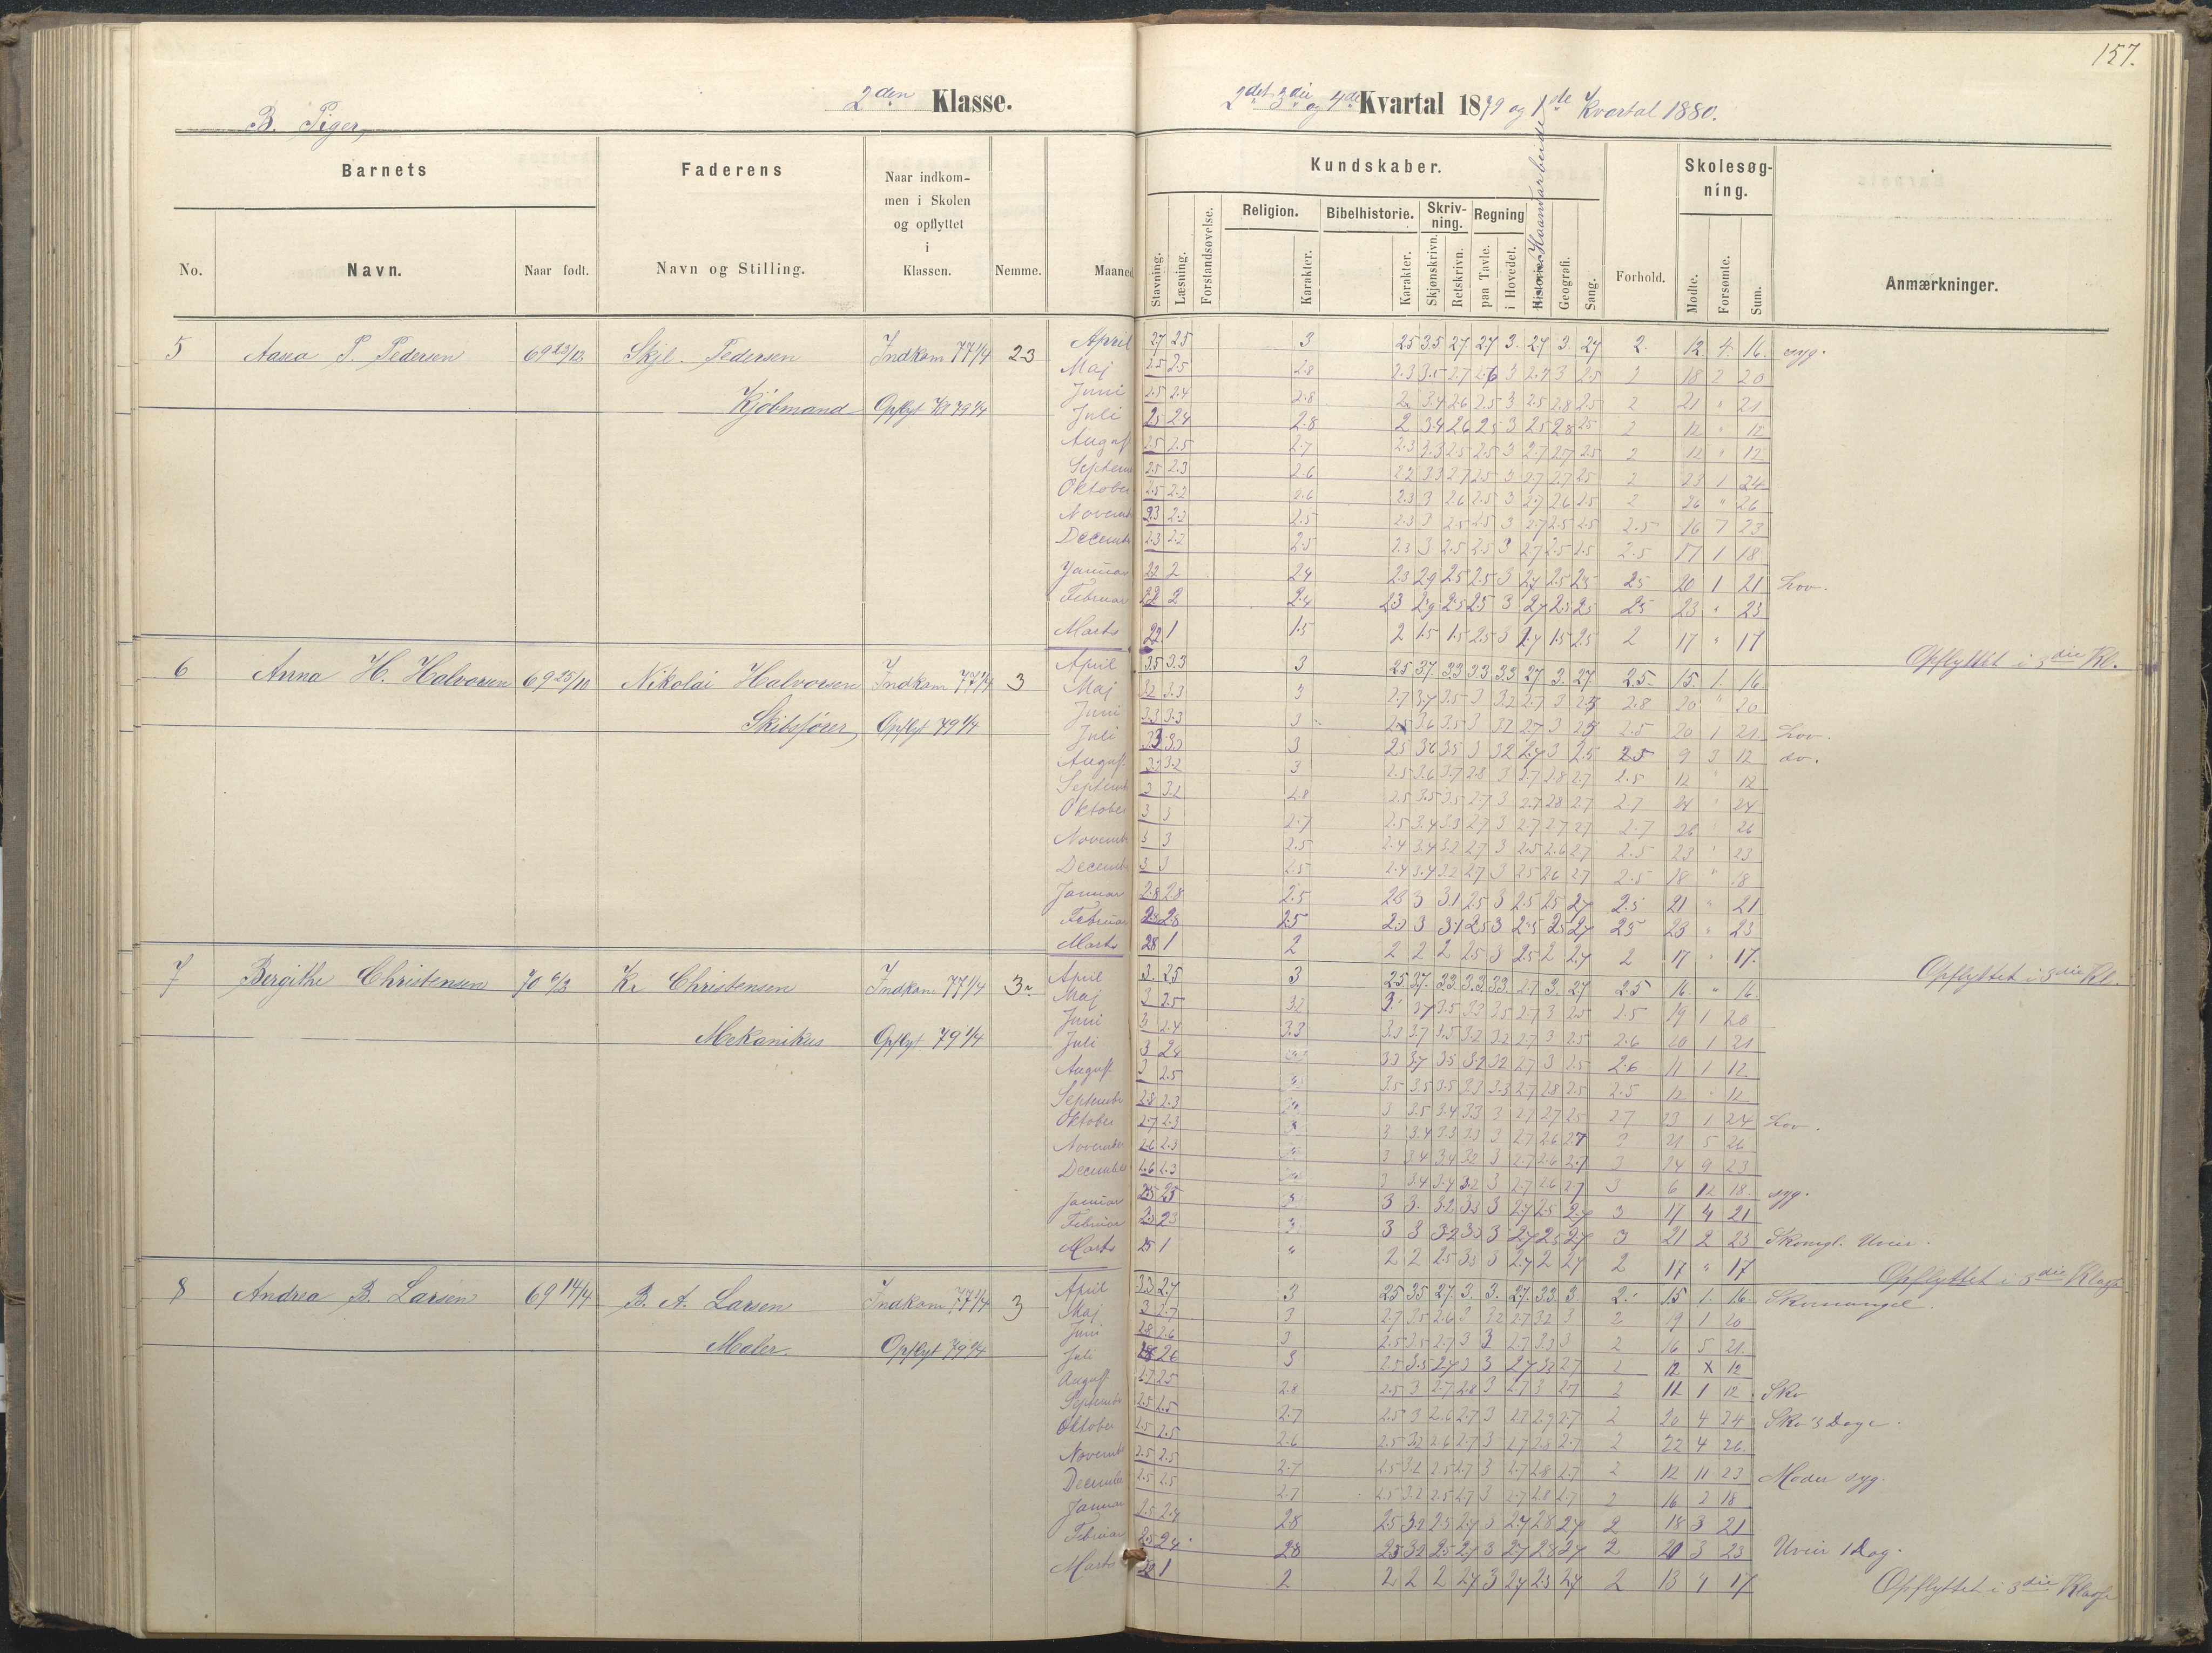 157.
B. Piger,
2den Klasse.
2det 3die og 4de Kvartal 1879 og 1ste Kvartal 1880.
Barnets
Faderens
Naar indkommen i Skolen og opflyttet i Klassen.
Nemme.
Maaned
Kundskaber.
Forhold.
Skolesøgning.
Anmærkninger.
No.
Navn.
Naar født.
Navn og Stilling.
Stavning.
Læsning.
Forstandsøvelse.
Religion.
Karakter.
Bibelhistorie.
Karakter.
Skrivning.
Skjønskrivn.
Retskrivn.
Regning
paa Tavle.
i Hovedet.
Historie. Haandarbeide
Geografi.
Sang.
Mødte.
Forsømte.
Sum.
5 Pedersen 69 23/12 Skjl. Pedersen Indkom 77 1/4 2.3 April 27 25 3 25 3.5 27 27 3. 27 3. 27 2. 12. 4. 16. syg.
Maj 2.5 2.5 2.8 2.3 3.5 2.7 2.6 3 2.7 3 2.5 2 18 2 20
Kjöbmand Opflyt 79 1/4 Juni 2.5 2.4 2.8 2 3.4 2.6 2.5 3 2.5 2.8 2.5 2 21 " 21
Juli 25 24 2.8 2 3.4 26 25 3 25 28 25 2 12 " 12
August 2.5 2.5 2.7 2.3 3.3 2.5 2.5 3 2.7 2.7 2.5 2 12 " 12
Septemb 2.5 2.3 2.6 2.2 3.3 2.7 2.5 3 2.7 2.7 2.5 2 23 1 24
Oktober 2.5 2.2 2.6 2.3 3 2.6 2.5 3 2.7 2.6 2.5 2 26 " 26
Novemb 2.3 2.2 2.5 2.3 3 2.5 2.5 3 2.7 2.5 2.5 2.5 16 7 23
Decemb 2.3 2.2 2.5 2.3 3 2.5 2.5 3 2.7 2.5 2.5 2.5 17 1 18
Januar 22 2 24 23 29 25 2.5 3 27 2.5 25 25 20 1 21 Lov.
Februar 22 2 2.4 23 29 25 25 3 27 25 25 25 23 " 23
Marts 22 1 1.5 2 15 1.5 2.5 3 1.4 15 25 2 17 " 17 Opflyttet i 3die Kl.
6 Anna H. Halvorsen 69 25/10 Nikolai Halvorsen Indkom 77 1/4 3 April 3.5 3.3 3 25 37. 33 3.3 33 27 3. 27 2.5 15. 1. 16.
Maj 3.2 3.3 3 2.7 3.7 3.5 3 3.2 2.7 3 2.5 2.8 20 " 20
Skibsfører, Opflyt 79 1/4 Juni 3.3 3.3 3 2.5 3.6 3.5 3 3.2 2.7 3 2.5 2.5 20 1 21 Lov.
Juli 33 33 3 25 36 35 3 32 2.7 3 2.5 2.5 9 3 12 do.
August 3.2 3.2 3 2.5 3.6 3.7 2.8 3 2.7 2.8 2.7 2.5 12 " 12
Septemb 3 3.2 2.8 2.5 3.5 3.5 2.7 3 2.7 2.8 2.7 2.7 24 " 24
Oktober 3 3 2.7 2.5 3.4 3.3 2.7 3 2.7 2.7 2.7 2.7 26 " 26
Novemb 3 3 2.5 2.4 3.4 3.2 2.7 3 2.5 2.6 2.7 2.5 23 " 23
Decemb 3 3 2.5 2.4 3.4 3.2 2.7 3 2.5 2.6 2.7 2.5 18 " 18
Januar 2.8 2.8 2.5 23 3 3.1 2.5 3 2.5 25 27 2.5 21 " 21
Februar 28 28 25 23 3 31 25 3 25 25 27 25 23 " 23
Marts 28 1 2 2 2 2 25 3 25 2 27 2 17 " 17. Opflyttet i 3die Kl.
7 Bergithe Christensen 70 Kr Christensen Indkom 77 1/4 3 April 3. 25 3 25 37. 33. 3.3 33. 2.7 3. 27 25 16. " 16.
Maj 3 2.5 3.2 3 37 3.5 3.3 3.5 2.7 3 2.5 2.5 19 1 20
Mekanikus Opflyt 79 1/4 Juni 3 2.4 3.3 3.3 3.7 3.5 3.2 3.2 2.7 3 2.5 2.6 20 1 21
Juli 3 24 33 3.7 35 3.2 32 27 3 2.5 2.6 11 1 12
August 3 2.5 3.5 3.5 3.5 3.3 3.3 2.7 2.8 2.5 2.5 12 " 12
September 2.8 2.3 3 3.5 3.4 3.3 3 2.7 2.7 2.5 2.7 23 1 24 Lov.
Oktober 2.7 2.3 3 3.4 3.3 3.3 3 2.7 2.6 2.7 3 21 5 26
November 2.6 2.3 3 3.4 3.4 3.2 3 2.7 2.6 2.7 3 14 9 23
December 2.6 2.3 3 3.4 3.4 3.2 3 2.7 2.6 2.7 3 6 12 18 syg.
Januar 25 23 3 3. 3.2 33 3 27 25 27 3 17 4 21
Februar 25 23 3 3 32 33 3 27 25 27 3 21 2 23 Skomgl. Uveir.
Marts 25 1 " 2 2 2.5 33 3 2.7 2 27 2 17 " 17 Opflyttet i 3die Klasse
8 Andrea B. Larsen 69 14/4 B. A. Larsen Indkom 77 1/4 3 April 33 27 3 25 35 27. 3. 3. 27. 33. 3 2. 15 1. 16. Skomangel.
Maj 3 2.7 3 2.7 3.5 2.6 3 3.2 2.7 3.2 3 2 19 1 20
Maler. Opflyt 79 1/4 Juni 2.8 2.6 3 2.5 3.5 2.7 3 3 2.7 3.3 3 2 16 5 21
Juli 28 26 3 2.5 3.5 27 3 3 27 33 27 2 12 x 12
August 2.7 25 2.8 2.5 3 2.7 2.8 3 2.7 3 2.7 2 11 1 12 Sko
Septemb 2.5 2.5 2.7 2.5 3 2.6 2.7 3 2.7 2.9 2.7 2 20 4 24 Sko 3 Dage.
Oktober 2.5 2.5 2.6 2.5 3.2 2.6 2.7 3 2.7 2.8 2.7 2 22 4 26.
Novemb 2.5 2.5 2.7 2.5 3.2 2.5 2.7 3 2.7 2.8 2.7 2 12 11 23 Moder syg.
Decemb 2.5 2.5 2.7 2.5 3.2 2.5 2.7 3 2.7 2.8 2.7 2 16 2 18
Januar 2.5 2.4 28 25 3.2 25 27 3 27 28 27 2 18 3 21
Februar 25 24 28 25 32 25 27 3 27 28 27 2 20 3 23 Uveir 1 Dag.
Marts 1 2 2 2 2 27 3 27 2.3 27 2 13 4 17 Opflyttet i 3die Klasse